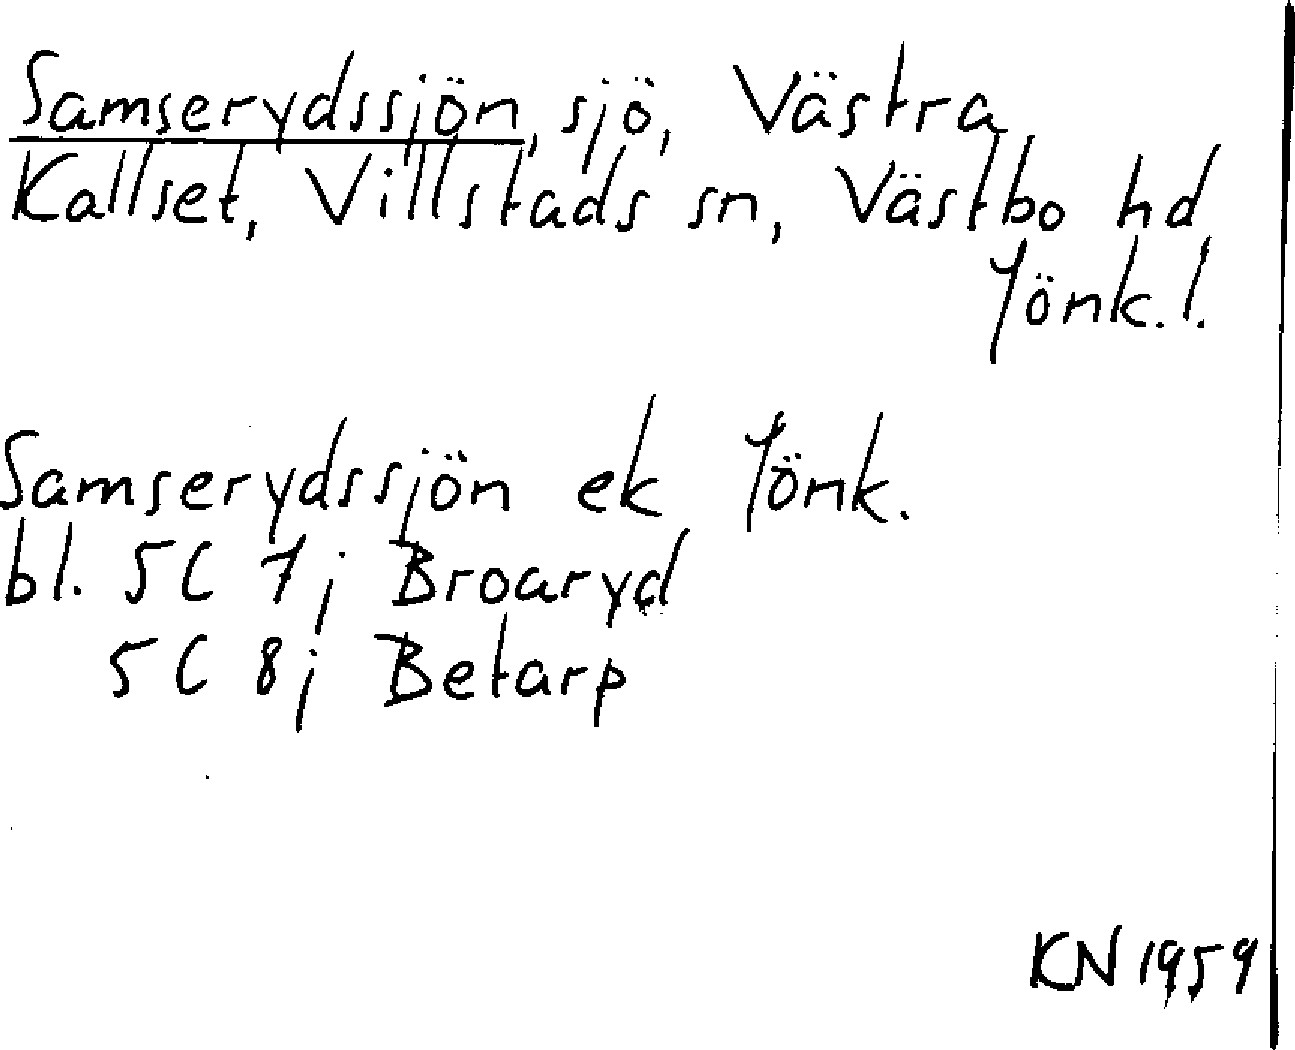 Samserydssjön, sjö, Västra
Kallset, Villstads sn, Västbo hd,
Jönk. l.
Samserydssjön ek Jönk.
bl. 5C 7j Broaryd
5C 8j Betarp
KN 1959